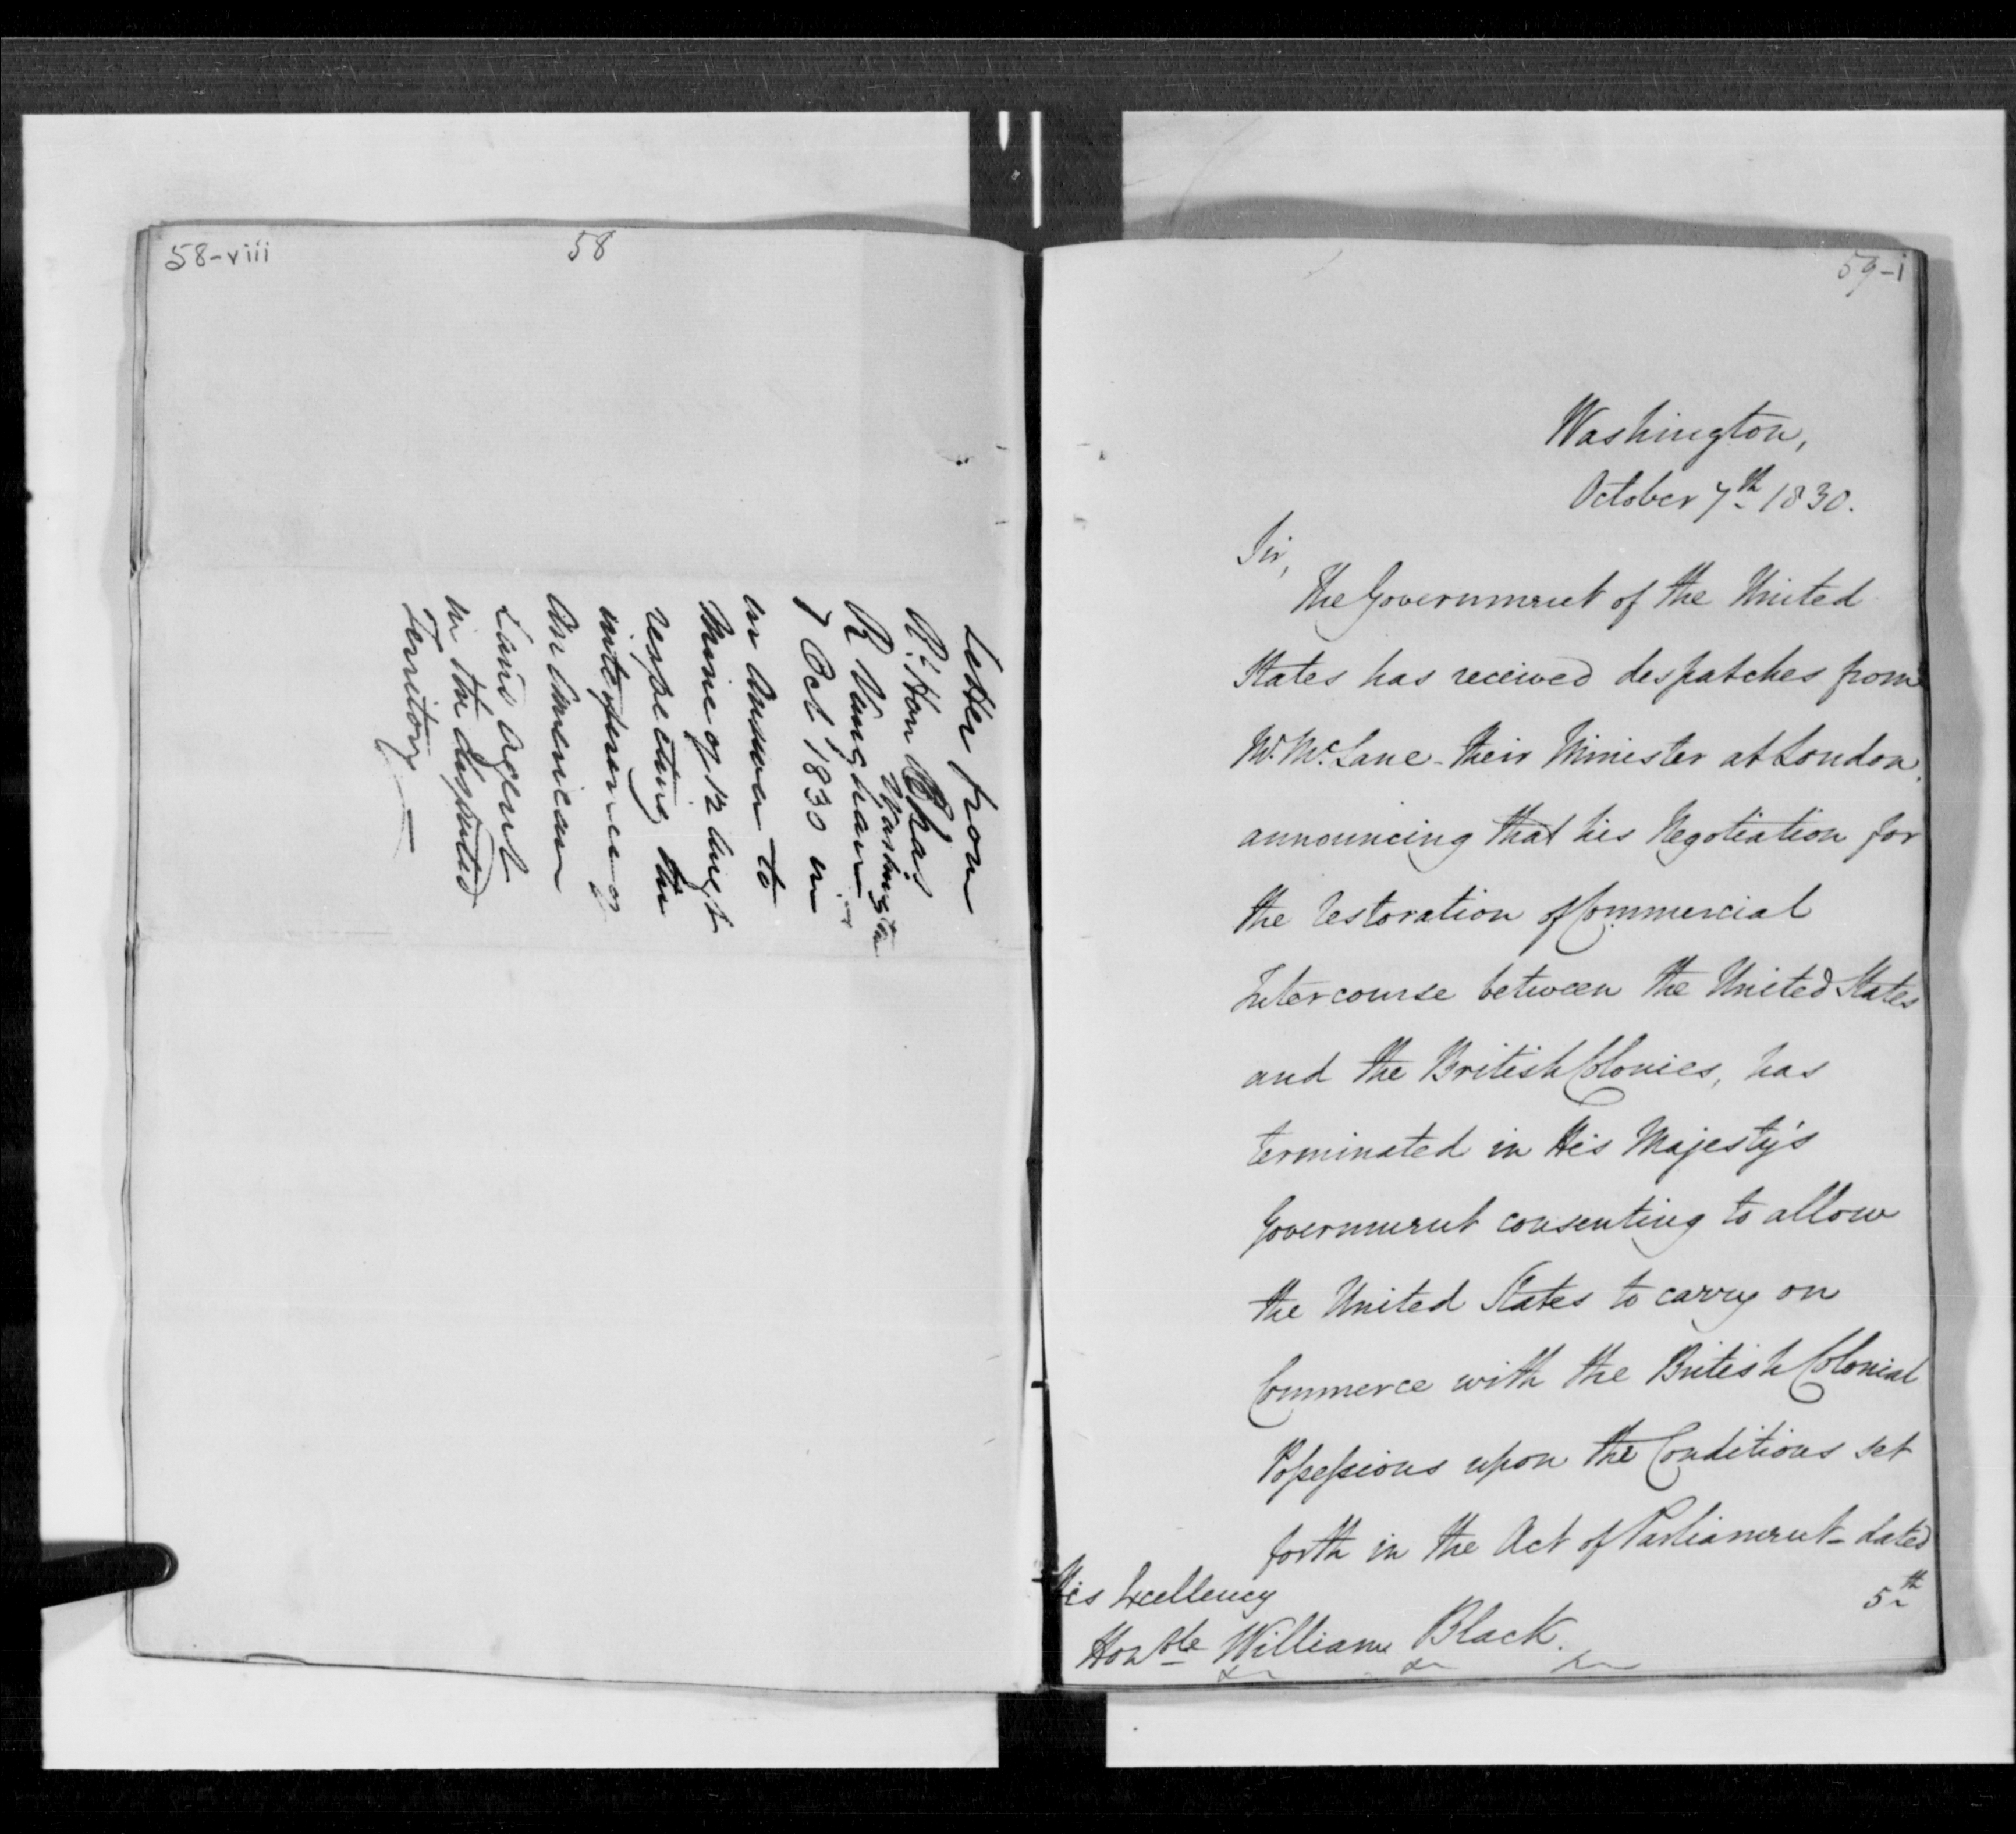 58-viii
58
Letter from
Rt. Hon Chas
R Vaughan
Washington
7 Oct 1830 in
in answer to
mine of 12 Augt
respecting the
interference of
an American
Land Agent
in the disputed
Territory —
59-i
Washington,
October 7th 1830.
Sir,
The Government of the United
States has received despatches from
Mr. McLane - their Minister at London,
announcing that his Negotiation for
the restoration of Commercial
Intercourse between the United States
and the British Colonies, has
terminated in His Majesty's
Government consenting to allow
the United States to carry on
Commerce with the British Colonial
Possessions upon the Conditions set
forth in the Act of Parliament - dated
5th
His Excellency
Honble William Black.